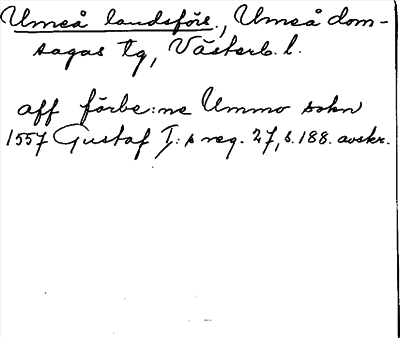 Umeå landsförs., Umeå dom-
sagas tg, Västerb. l.
aff förbe:ne Ummo sokn
1557 Gustaf I:s reg. 27, s. 188. avskr.